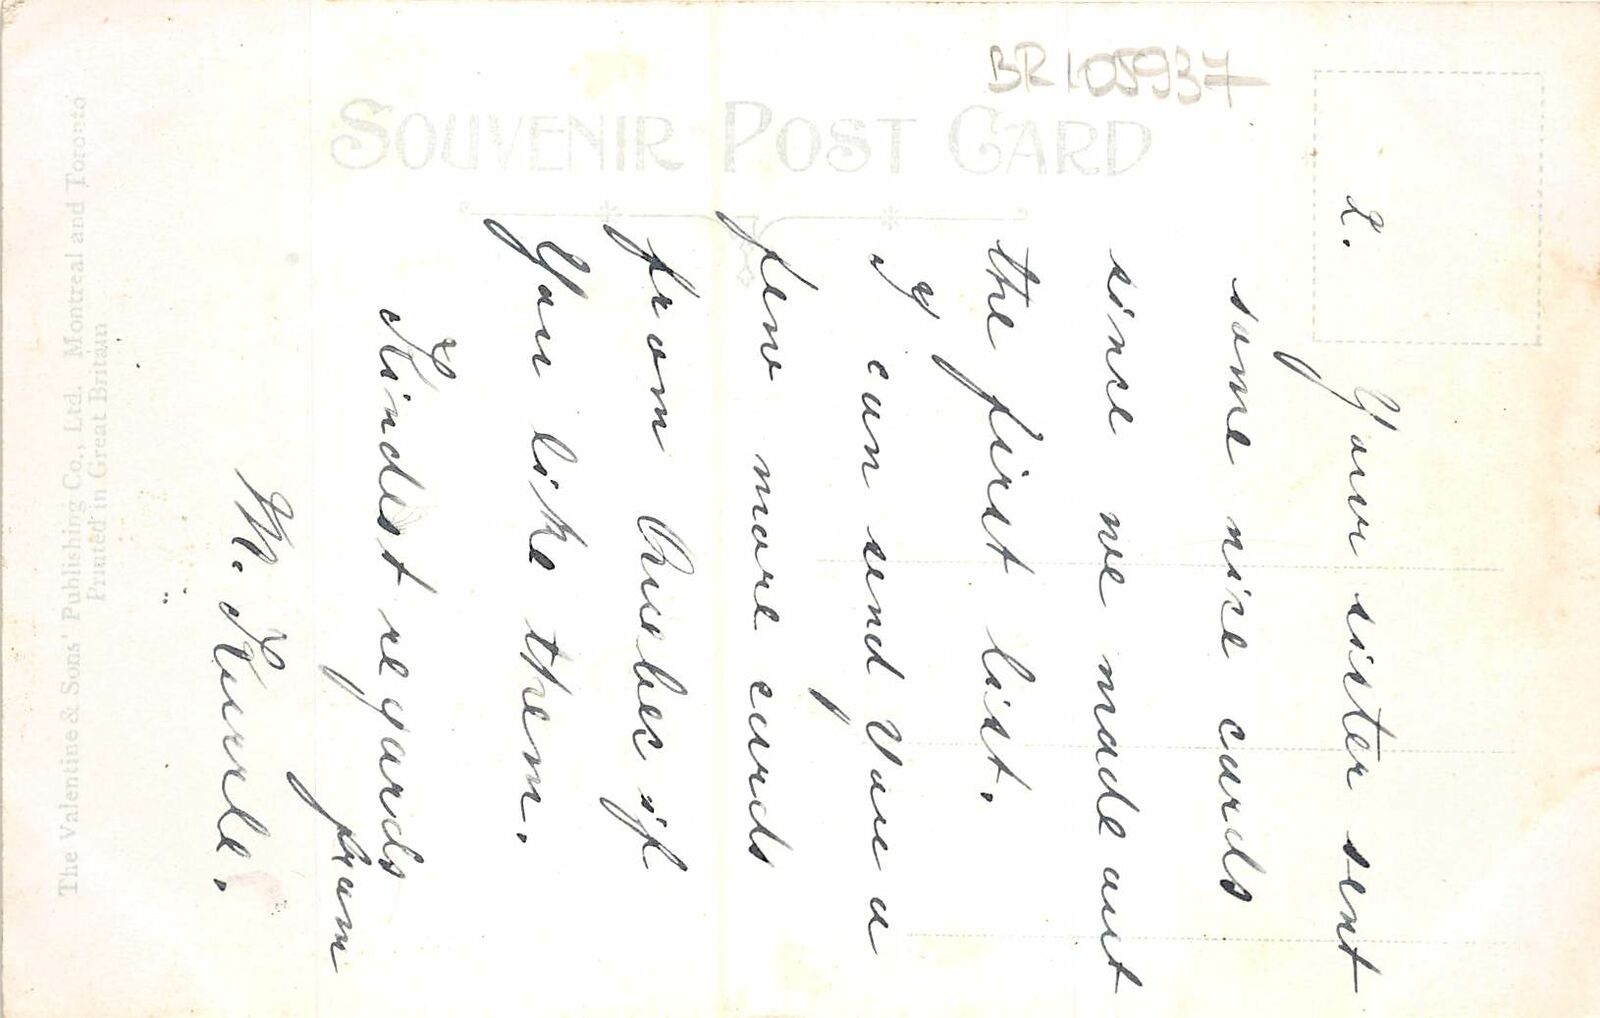 BR105937
SOUVENIR POST CARD
The Valentine & Sons' Publishing Co., Ltd. Montreal and Toronto
Printed in Great Britain
2. Your sister sent
some nice cards
since we made out
the first list.
I can send You a
few more cards
from if
You like them.
Kindest regards
from
M.